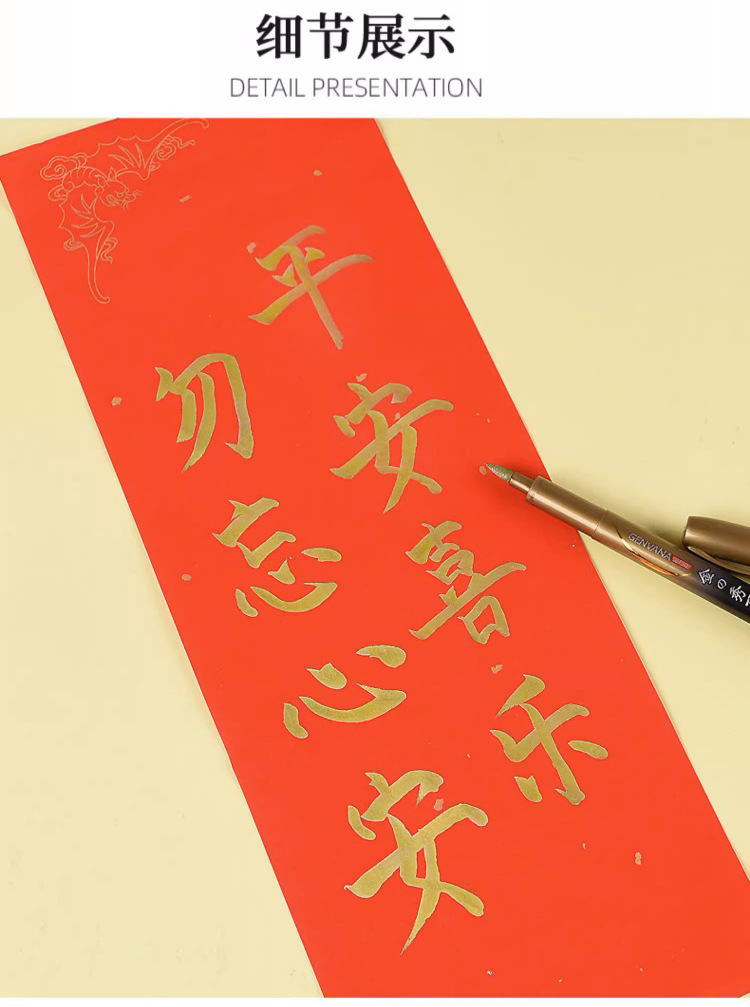 细节展示
DETAIL PRESENTATION
平安喜乐
勿忘心安
GENVANA
金の秀